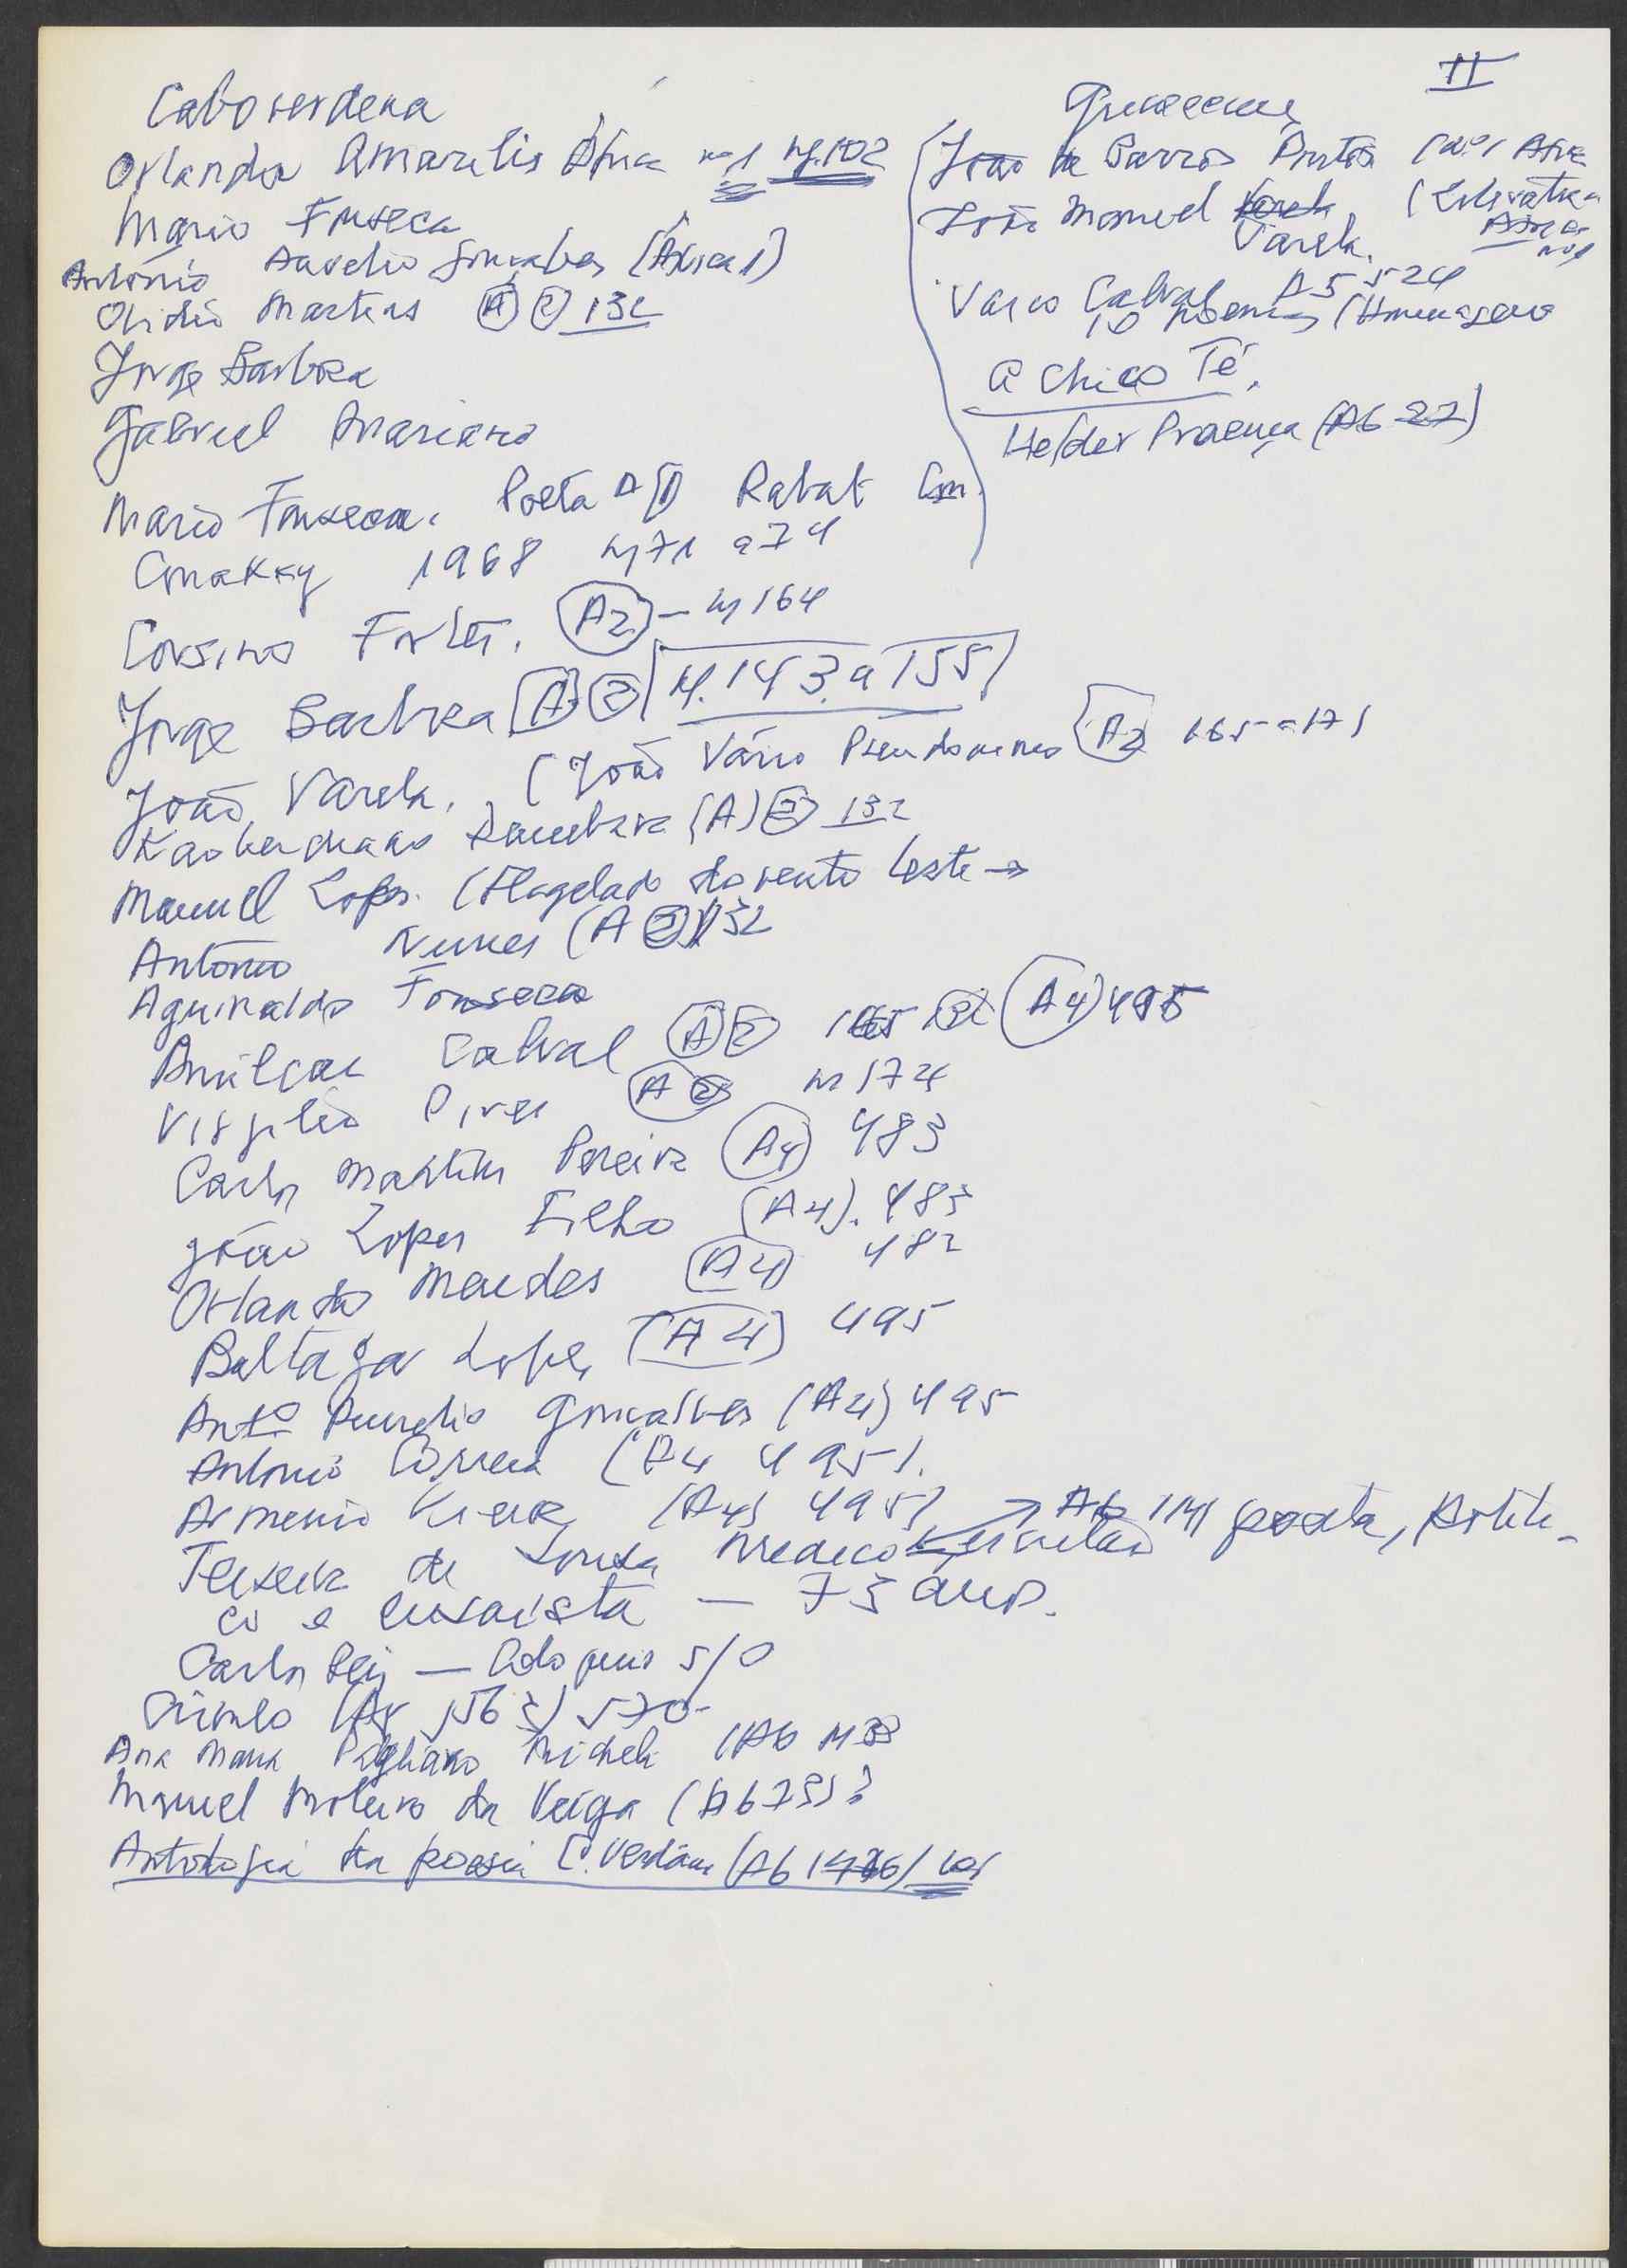 II
Caboverdena
Orlanda Amarilis África nº 1 pg. 102
Mario Fonseca
António Aurelio Gonçalves (África 1)
Ovidio Martins (A) (2) 132
Jorge Barbosa
Gabriel Mariano
Mario Fonseca. Poeta Rabat Em
Conakry 1968 pg 71 a 74
Corsino Fortes. (A2) - pg 164
Jorge Barbosa (A) (2) pg. 143 a 155
João Varela. (João Vário Pseudonimo (A2 165 a 171
Kaoberdiano Dambara (A) (2) 132
Manuel Lopes. (Flagelado do vento Leste →
António Nunes (A (2)) 132
Aguinaldo Fonseca
Amilcar Cabral (A) (2) (A4) 495
Virgilio Pires (A (2)) pg 174
Carlos Martins Pereira (A4) 483
João Lopes Filho (A4). 483
Orlando Mendes (A4) 482
Baltazar Lopes (A4) 495
Antº Aurelio Gonçalves (A4) 495
Antonio Correia (A4 495).
Armenio Vieira (A4) 495)
Teixeira de Sousa Medico → A6 1141 poeta, politi-
co e ensaista — 73 anos.
Carlos Reis — 510
570
Ana Maria Michel (A6
Manuel da Veiga (A6
Antologia da poesia C. Verdiana (A6
João de Barros Pinto (nº 1
João Manuel Varela (Literatura
Varela. nº 1
Vasco Cabral A5 524
10 poemas (Homenagem
a Chico Té.
Helder Proença (A6 27)